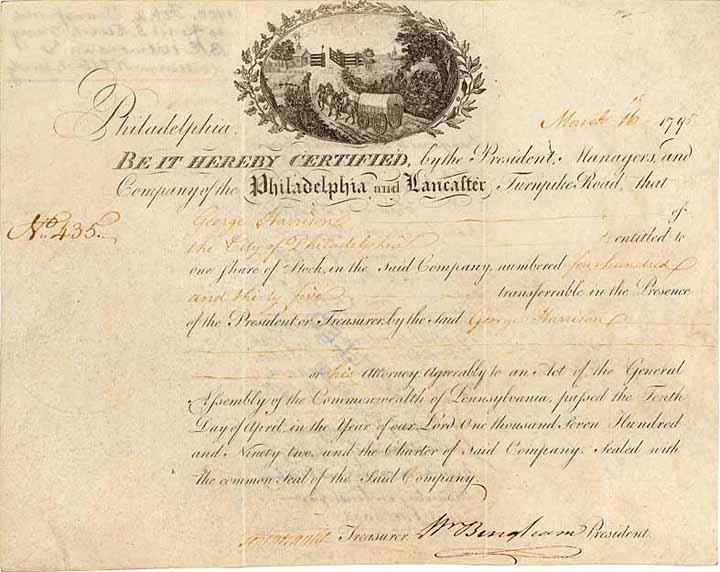 Philadelphia, March 16th 1795
BE IT HEREBY CERTIFIED, by the President, Managers, and
Company of the Philadelphia and Lancaster Turnpike Road, that
No. 435. George Harrison of
the City of Philadelphia is entitled to
one Share of Stock, in the said Company, numbered four hundred
and thirty five transferrable in the Presence
of the President or Treasurer, by the Said George Harrison
or his Attorney Agreeably to an Act of the General
Assembly of the Commonwealth of Pennsylvania, passed the Tenth
Day of April, in the Year of our Lord One thousand Seven Hundred
and Ninety two, and the Charter of said Company. Sealed with
the common Seal of the Said Company
Treasurer. Wm Bingham President.